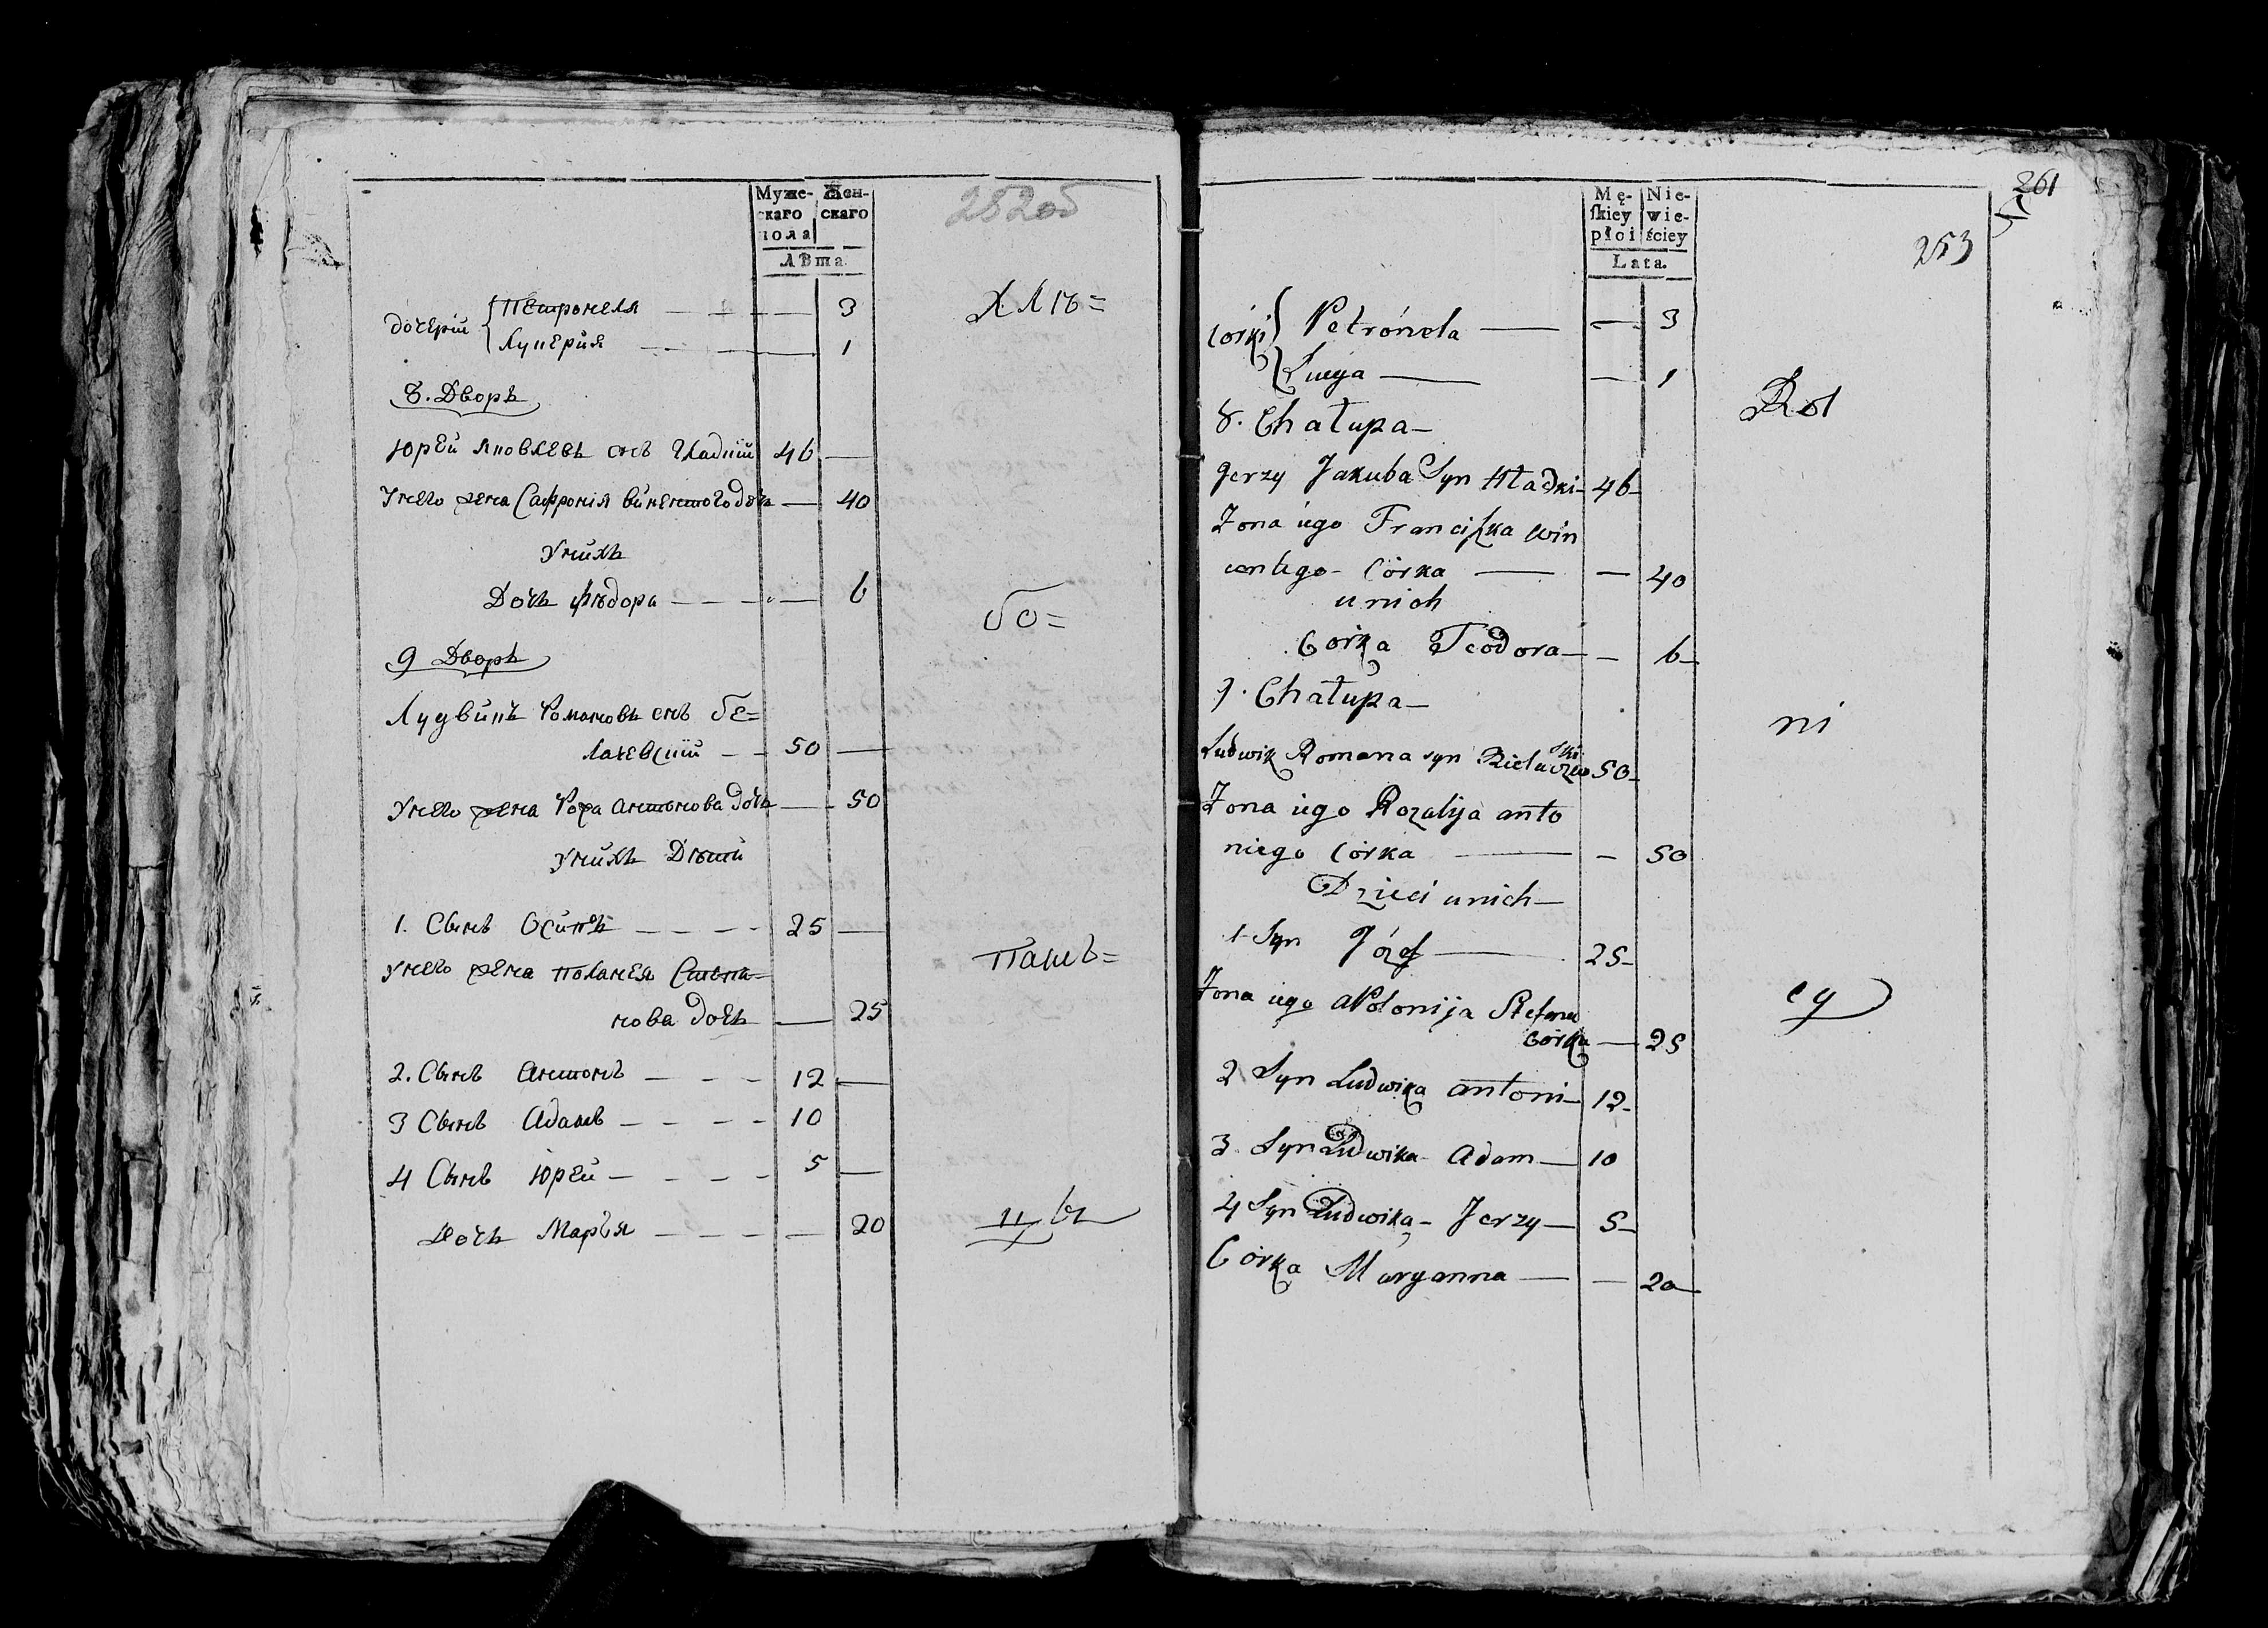 Муже-
скаго
пола
Жен-
скаго
Лѣта
252об
дочери Петронеля — 3
Луцерия — 1
Хлѣ=
8. Дворъ
Юрей Яковлевъ снъ Гладкій 46 —
У него жена Сафронія Винентого дочь — 40
У нихъ
Дочь Фѣдора — 6
бо=
9 Дворъ
Лудвикъ Романовъ снъ Бе=
лачевскій — 50 —
У него жена Рожа Антонова дочь — 50
У нихъ Дѣти
1. Сынъ Осипъ — 25 —
У него жена Поланея Степа=
нова дочь — 25
пашъ=
2. Сынъ Антонъ — 12 —
3 Сынъ Адамъ — 10
4 Сынъ Юрей — 5 —
Дочь Марья — 20
цы
Mę-
ſkiey
płci
Nie-
wie-
ściey
Lata.
261
253
Córki Petronela — 3
Łucya — 1
Rol
8. Chałupa —
Jerzy Jakuba Syn Hładki — 46 —
Zona iego Franciſzka Win
centego - Córka — 40
u nich
Córka Teodora — 6 —
9. Chałupa —
ni
Ludwik Romana syn Bielaczewski 50 —
Zona iego Rozalija anto
niego Córka — 50
Dzieci u nich —
1 Syn Józef — 25 —
Zona iego aPolonija Stefana
Córka — 25
cy
2 Syn Ludwika antoni — 12 -
3. Syn Ludwika Adam — 10
4 Syn Ludwika - Jerzy — 5 —
Córka Maryanna — 20